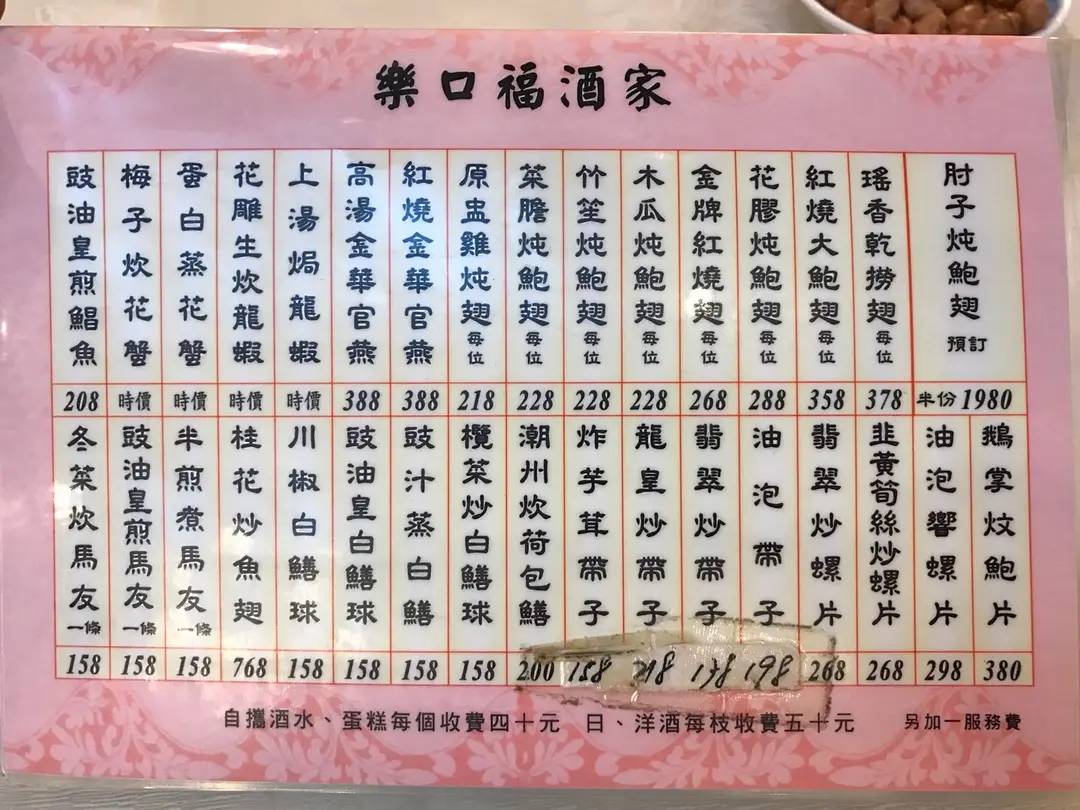 樂口福酒家
肘子炖鮑翅 預訂
半份 1980
瑤香乾撈翅 每位
378
紅燒大鮑翅 每位
358
花膠炖鮑翅 每位
288
金牌紅燒翅 每位
268
木瓜炖鮑翅 每位
228
竹笙炖鮑翅 每位
228
菜膽炖鮑翅 每位
228
原盅雞炖翅 每位
218
紅燒金華官燕
388
高湯金華官燕
388
上湯焗龍蝦
時價
花雕生炊龍蝦
時價
蛋白蒸花蟹
時價
梅子炊花蟹
時價
豉油皇煎鯧魚
208
鵝掌炆鮑片
380
油泡響螺片
298
韭黃筍絲炒螺片
268
翡翠炒螺片
268
油泡帶子
198
翡翠炒帶子
龍皇炒帶子
炸芋茸帶子
158
潮州炊荷包鱔
200
欖菜炒白鱔球
158
豉汁蒸白鱔
158
豉油皇白鱔球
158
川椒白鱔球
158
桂花炒魚翅
768
半煎煮馬友 一條
158
豉油皇煎馬友 一條
158
冬菜炊馬友 一條
158
自攜酒水、蛋糕每個收費四十元 日、洋酒每枝收費五十元 另加一服務費